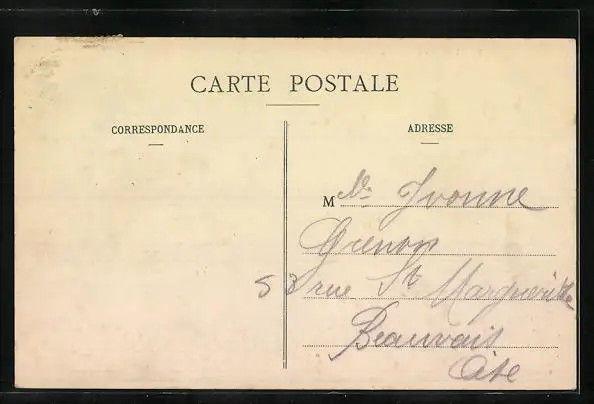 CARTE POSTALE
CORRESPONDANCE
ADRESSE
M lle Yvonne
Grenon
53 rue St Marguerite
Beauvais
Oise